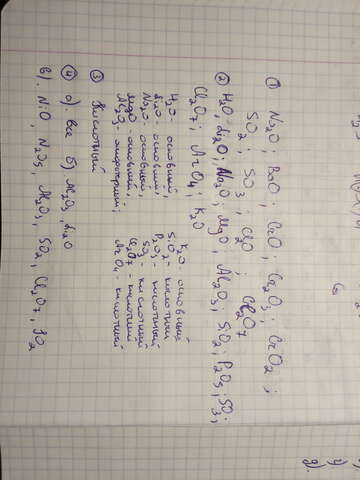 ① Na₂O; BaO; CrO; Cr₂O₃; CrO₂;
SO₂; SO₃; Cl₂O; Cl₂O₇
② H₂O; Li₂O; Na₂O; MgO, Al₂O₃, SiO₂; P₂O₅, SO₃;
Cl₂O₇; ArO₄; K₂O
H₂O - основный,
Li₂O - основный,
Na₂O - основный,
MgO - основный,
Al₂O₃ - амфотерный;
K₂O - основный
SiO₂ - кислотный
P₂O₅ - кислотный
SO₃ - кислотный
Cl₂O₇ - кислотный
ArO₄ - кислотный
③ Кислотный
④ а). все б) Al₂O₃, Li₂O
в). NiO, N₂O₅, Al₂O₃, SO₂, Cl₂O₇,